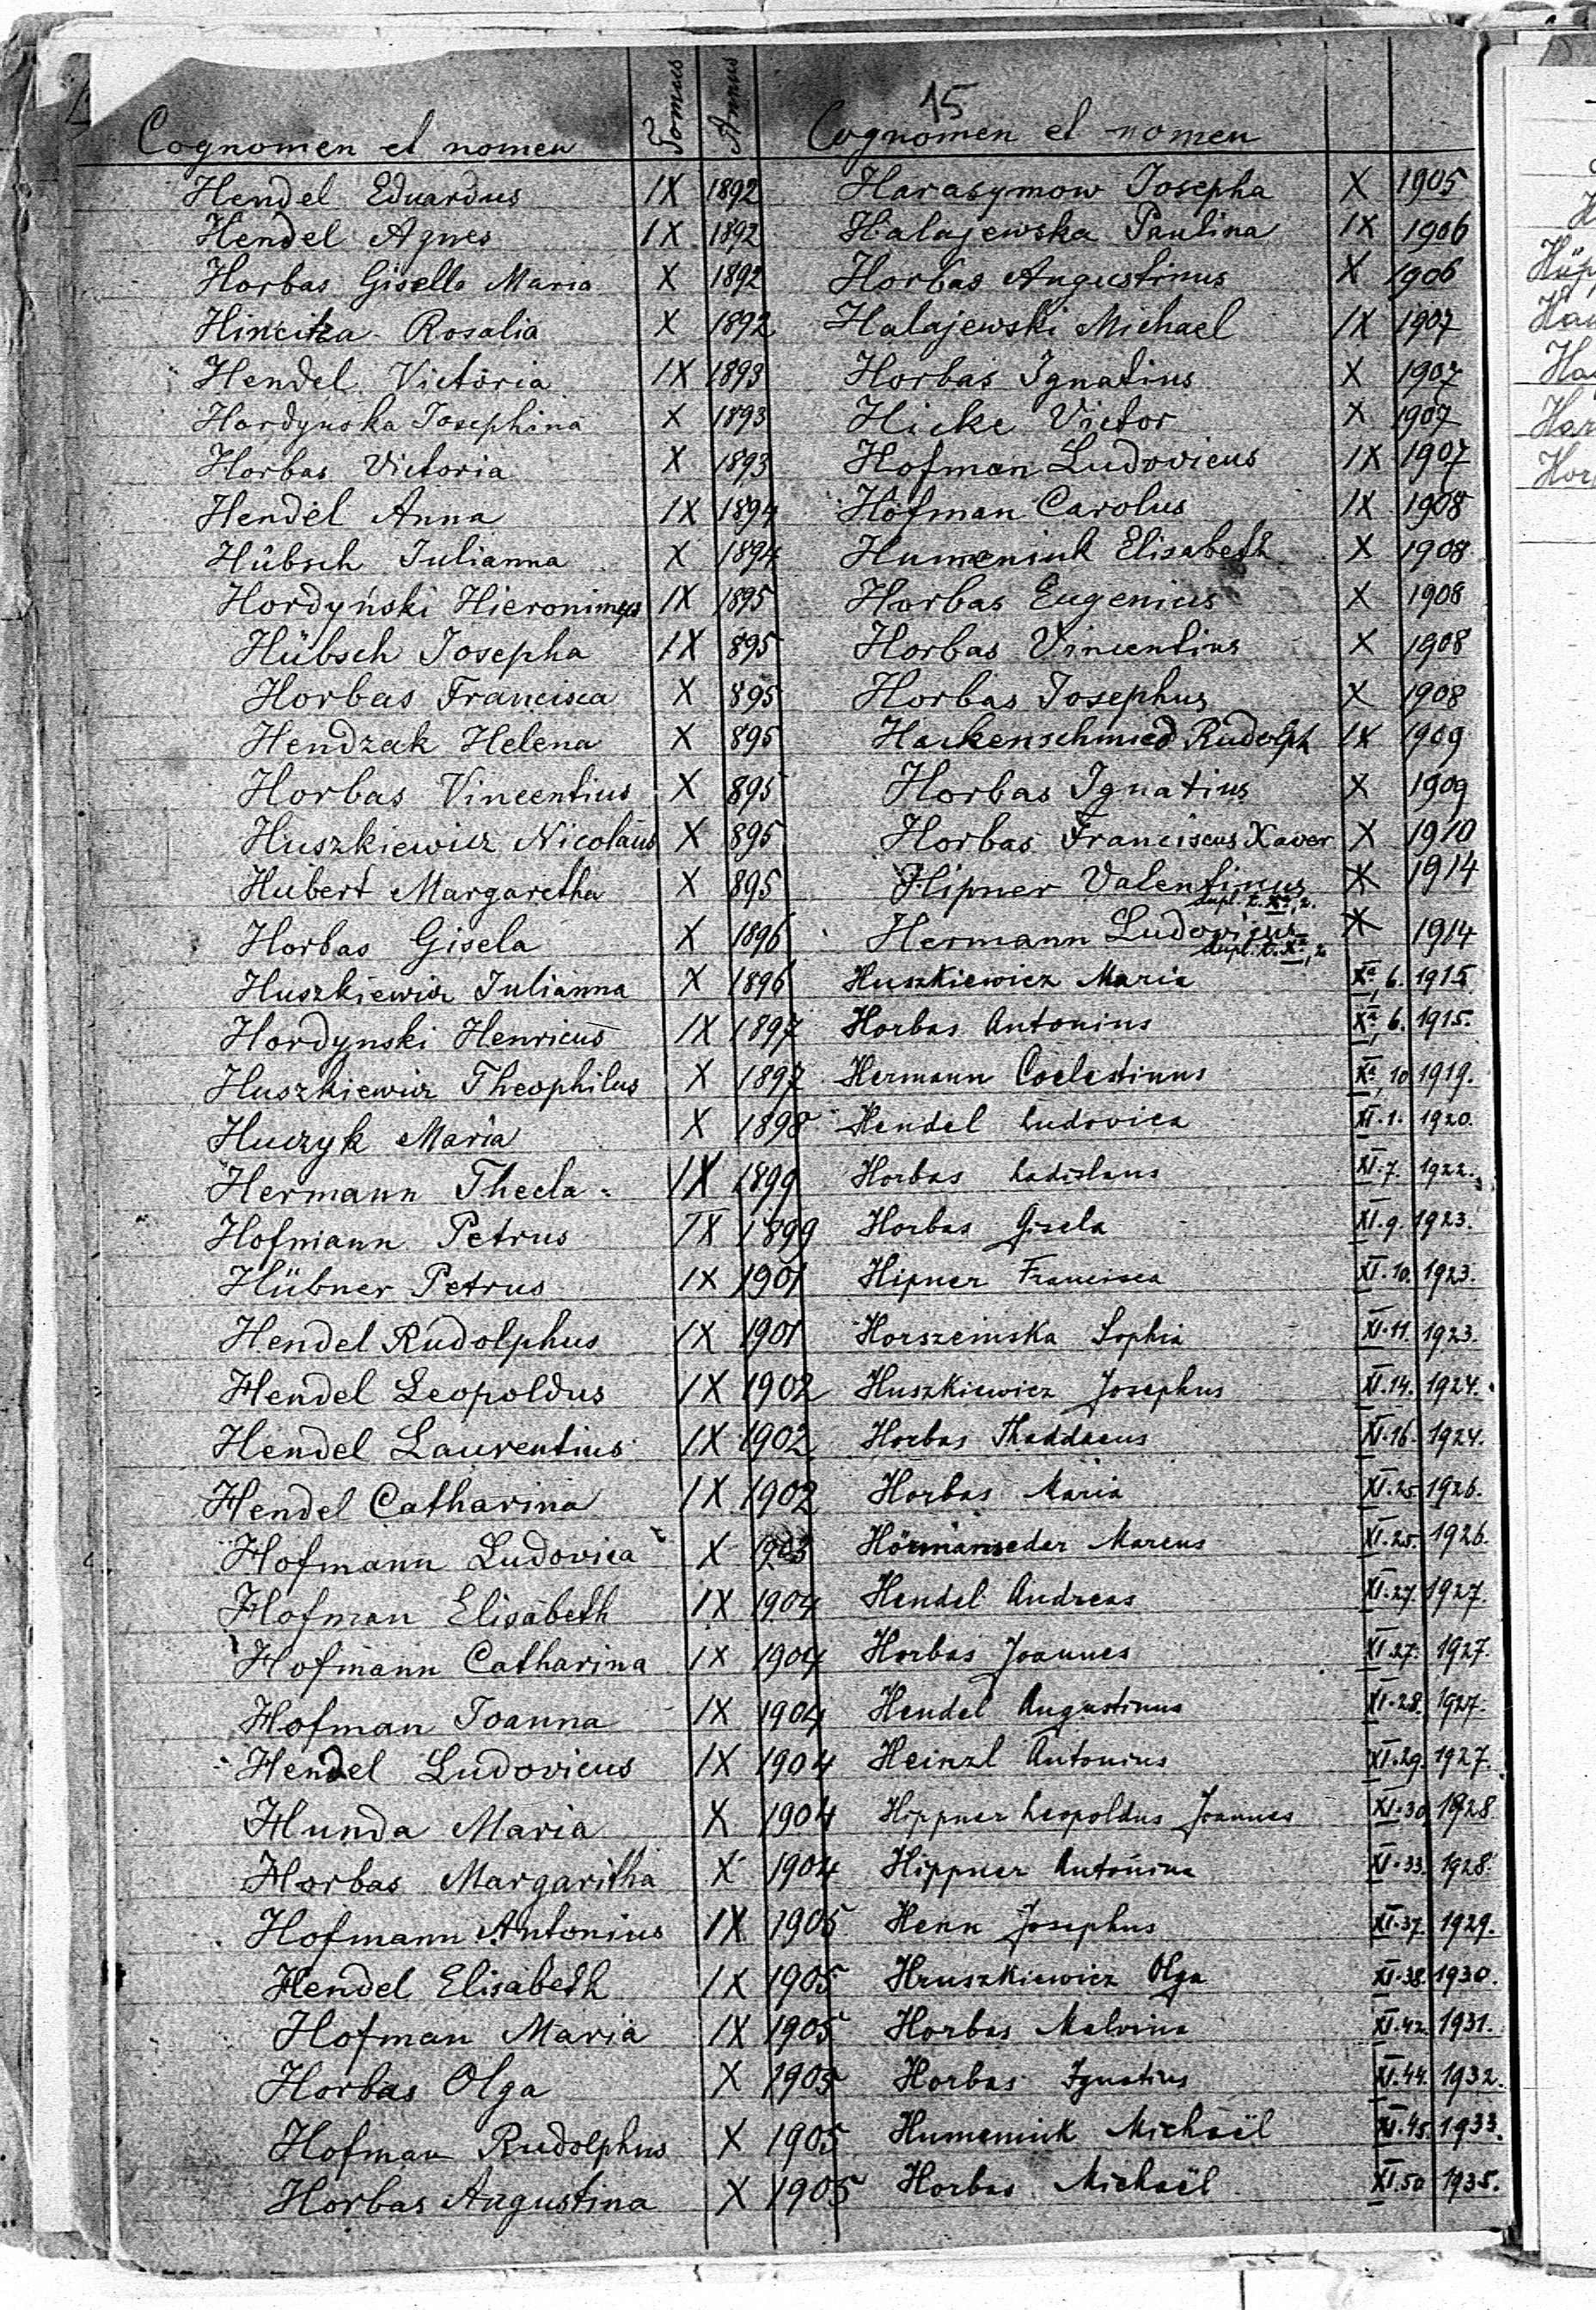 15
Cognomen et nomen Tomus Annus
Hendel Eduardus IX 1892
Hendel Agnes IX 1892
Horbas Gisella Maria X 1892
Hincitza Rosalia X 1892
Hendel Victoria IX 1893
Hordynska Josephina X 1893
Horbas Victoria X 1893
Hendel Anna IX 1894
Hübsch Julianna X 1894
Hordyński Hieronimus IX 1895
Hübsch Josepha IX 895
Horbas Francisca X 895
Hendzak Helena X 895
Horbas Vincentius X 895
Huszkiewicz Nicolaus X 895
Hubert Margaretha X 895
Horbas Gisela X 1896
Huszkiewicz Julianna X 1896
Hordynski Henricus IX 1897
Huszkiewicz Theophilus X 1897
Huczyk Maria X 1898
Hermann Thecla IX 1899
Hofmann Petrus IX 1899
Hübner Petrus IX 1901
Hendel Rudolphus IX 1901
Hendel Leopoldus IX 1902
Hendel Laurentius IX 1902
Hendel Catharina IX 1902
Hofmann Ludovica X 1903
Hofman Elisabeth IX 1904
Hofmann Catharina IX 1904
Hofman Joanna IX 1904
Hendel Ludovicus IX 1904
Hunda Maria X 1904
Horbas Margaritha X 1904
Hofmann Antonius IX 1905
Hendel Elisabeth IX 1905
Hofman Maria IX 1905
Horbas Olga X 1905
Hofman Rudolphus X 1905
Horbas Augustina X 1905
Cognomen et nomen
Harasymow Josepha X 1905
Halajewska Paulina IX 1906
Horbas Augustinus X 1906
Halajewski Michael IX 1907
Horbas Ignatius X 1907
Hicke Victor X 1907
Hofman Ludovicus IX 1907
Hofman Carolus IX 1908
Humeniuk Elisabeth X 1908
Horbas Eugenius X 1908
Horbas Vincentius X 1908
Horbas Josephus X 1908
Hackenschmied Rudolph IX 1909
Horbas Ignatius X 1909
Horbas Franciscus Xaver X 1910
Hipner Valentinus X 1914
dupl. t. Xa, 2.
Hermann Ludovicus X 1914
dupl. t. Xa, 2
Huszkiewicz Maria Xa, 6. 1915.
Horbas Antonius Xa, 6. 1915.
Hermann Coelestinus Xa, 10 1919.
Hendel Ludovica XI.1. 1920.
Horbas Ladislaus XI.7. 1922.
Horbas Gisela XI.9. 1923.
Hipner Francisca XI.10. 1923.
Horszeinska Sophia XI.11. 1923.
Huszkiewicz Josephus XI.14. 1924.
Horbas Thaddaeus XI.16. 1924.
Horbas Maria XI.25 1926.
Hörmanseder Marcus XI.25. 1926.
Hendel Andreas XI.27. 1927.
Horbas Joannes XI.27. 1927.
Hendel Augustinus XI.28. 1927.
Heinzl Antonius XI.29. 1927.
Hippner Leopoldus Joannes XI.30. 1928
Hippner Antonina XI.33. 1928.
Henn Josephus XI.37. 1929.
Hruszkiewicz Olga XI.38. 1930.
Horbas Malvina XI.42. 1931.
Horbas Ignatius XI.44. 1932.
Humeniuk Michaël XI.45. 1933.
Horbas Michaël XI.50 1935.